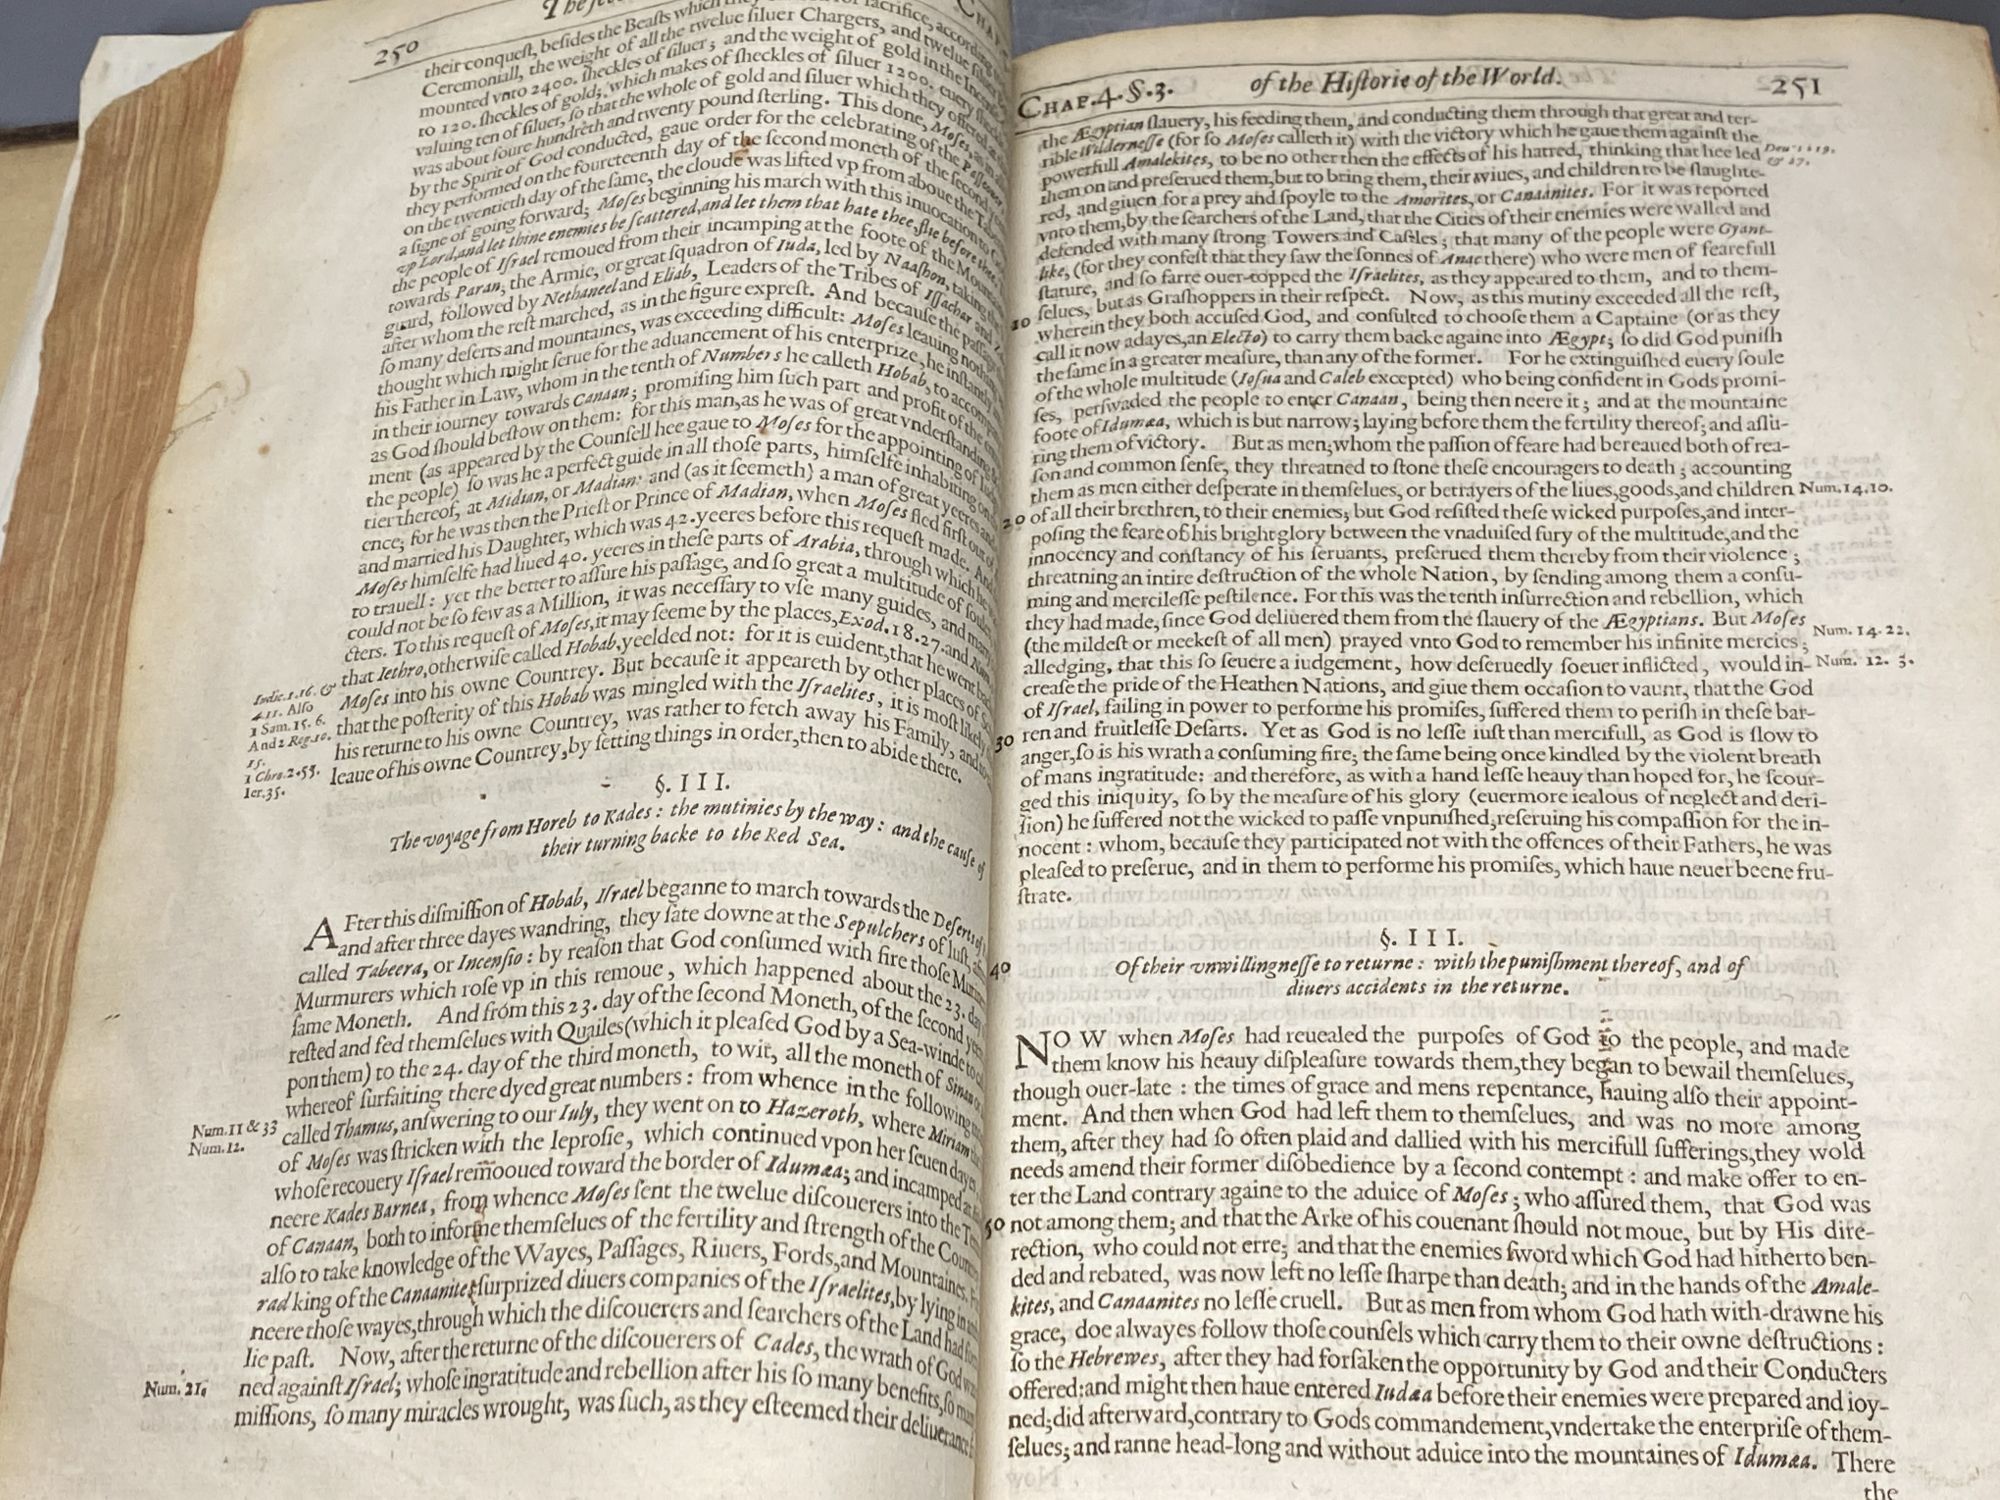 250
their conquest, besides the Beasts which they sacrifice, according
Ceremoniall, the weight of all the twelue siluer Chargers, and twelue siluer
mounted vnto 2400. sheckles of siluer; and the weight of gold in the Incense
to 120. sheckles of gold; which makes of sheckles of siluer 1200. euery sheckle
valuing ten of siluer, so that the whole of gold and siluer which they offered
was about foure hundreth and twenty pound sterling. This done, Moses, as in all
by the Spirit of God conducted, gaue order for the celebrating of the Passeouer
they performed on the foureteenth day of the second moneth of the second
on the twentieth day of the same, the cloude was lifted vp from aboue the
a signe of going forward; Moses beginning his march with this inuocation to God
vp Lord, and let thine enemies be scattered, and let them that hate thee, flie before thee.
the people of Israel remoued from their incamping at the foote of the Mountaine
towards Paran, the Armie, or great squadron of Iuda, led by Naashon, taking the
guard, followed by Nethaneel and Eliab, Leaders of the Tribes of Issachar and
after whom the rest marched, as in the figure exprest. And because the passage
so many deserts and mountaines, was exceeding difficult: Moses leauing nothing
thought which might serue for the aduancement of his enterprize, he instantly
his Father in Law, whom in the tenth of Numbers he calleth Hobab, to accompany
in their iourney towards Canaan; promising him such part and profit of the
as God should bestow on them: for this man, as he was of great vnderstanding
ment (as appeared by the Counsell hee gaue to Moses for the appointing of
the people) so was he a perfect guide in all those parts, himselfe inhabiting on
tier thereof, at Midian, or Madian: and (as it seemeth) a man of great yeeres and
ence; for he was then the Priest or Prince of Madian, when Moses fled first out of
and married his Daughter, which was 42. yeeres before this request made. And
Moses himselfe had liued 40. yeeres in these parts of Arabia, through which he
to trauell: yet the better to assure his passage, and so great a multitude of soules
could not be so few as a Million, it was necessary to vse many guides, and many
cters. To this request of Moses, it may seeme by the places, Exod. 18.27. and
that Iethro, otherwise called Hobab, yeelded not: for it is euident, that he went back
Moses into his owne Countrey. But because it appeareth by other places of
that the posterity of this Hobab was mingled with the Israelites, it is most likely
his returne to his owne Countrey, was rather to fetch away his Family, and
leaue of his owne Countrey, by setting things in order, then to abide there.
Iudic. 1.16. &
4.11. Also
1 Sam. 15. 6.
And 2 Reg. 10.
15.
1 Chro. 2.53.
Ier. 35.
§. III.
The voyage from Horeb to Kades: the mutinies by the way: and the cause of
their turning backe to the Red Sea.
AFter this dismission of Hobab, Israel beganne to march towards the Deserts of
and after three dayes wandring, they sate downe at the Sepulchers of lust,
called Tabeera, or Incensio: by reason that God consumed with fire those
Murmurers which rose vp in this remoue, which happened about the 23. day
same Moneth. And from this 23. day of the second Moneth, of the second
rested and fed themselues with Quailes (which it pleased God by a Sea-winde to
pon them) to the 24. day of the third moneth, to wit, all the moneth of Siuan
whereof surfaiting there dyed great numbers: from whence in the following
called Thamus, answering to our Iuly, they went on to Hazeroth, where Miriam
of Moses was stricken with the leprosie, which continued vpon her seuen dayes,
whose recouery Israel remooued toward the border of Idumæa; and incamped at
neere Kades Barnea, from whence Moses sent the twelue discouerers into the
of Canaan, both to informe themselues of the fertility and strength of the
also to take knowledge of the Wayes, Passages, Riuers, Fords, and Mountaines.
rad king of the Canaanites surprized diuers companies of the Israelites, by lying in
neere those wayes, through which the discouerers and searchers of the Land had
lie past. Now, after the returne of the discouerers of Cades, the wrath of God
ned against Israel; whose ingratitude and rebellion after his so many benefits, so many
missions, so many miracles wrought, was such, as they esteemed their deliuerance
Num. 11 & 33
Num. 12.
Num. 21.
CHAP. 4. §. 3. of the Historie of the World. 251
the Ægyptian slauery, his feeding them, and conducting them through that great and ter-
rible Wildernesse (for so Moses calleth it) with the victory which he gaue them against the
powerfull Amalekites, to be no other then the effects of his hatred, thinking that hee led
them on and preserued them, but to bring them, their wiues, and children to be slaughte-
red, and giuen for a prey and spoyle to the Amorites, or Canaanites. For it was reported
vnto them, by the searchers of the Land, that the Cities of their enemies were walled and
defended with many strong Towers and Castles; that many of the people were Gyant-
like, (for they confest that they saw the sonnes of Anac there) who were men of fearefull
stature, and so farre ouer-topped the Israelites, as they appeared to them, and to them-
selues, but as Grashoppers in their respect. Now, as this mutiny exceeded all the rest,
10 wherein they both accused God, and consulted to choose them a Captaine (or as they
call it now adayes, an Electo) to carry them backe againe into Ægypt; so did God punish
the same in a greater measure, than any of the former. For he extinguished euery soule
of the whole multitude (Iosua and Caleb excepted) who being confident in Gods promi-
ses, perswaded the people to enter Canaan, being then neere it; and at the mountaine
foote of Idumæa, which is but narrow; laying before them the fertility thereof; and assu-
ring them of victory. But as men, whom the passion of feare had bereaued both of rea-
son and common sense, they threatned to stone these encouragers to death; accounting
them as men either desperate in themselues, or betrayers of the liues, goods, and children
20 of all their brethren, to their enemies; but God resisted these wicked purposes, and inter-
posing the feare of his bright glory betweene the vnaduised fury of the multitude, and the
innocency and constancy of his seruants, preserued them thereby from their violence;
threatning an intire destruction of the whole Nation, by sending among them a consu-
ming and mercilesse pestilence. For this was the tenth insurrection and rebellion, which
they had made, since God deliuered them from the slauery of the Ægyptians. But Moses
(the mildest or meekest of all men) prayed vnto God to remember his infinite mercies;
alledging, that this so seuere a iudgement, how deseruedly soeuer inflicted, would in-
crease the pride of the Heathen Nations, and giue them occasion to vaunt, that the God
of Israel, failing in power to performe his promises, suffered them to perish in these bar-
30 ren and fruitlesse Desarts. Yet as God is no lesse iust than mercifull, as God is slow to
anger, so is his wrath a consuming fire; the same being once kindled by the violent breath
of mans ingratitude: and therefore, as with a hand lesse heauy than hoped for, he scour-
ged this iniquity, so by the measure of his glory (euermore iealous of neglect and deri-
sion) he suffered not the wicked to passe vnpunished, reseruing his compassion for the in-
nocent: whom, because they participated not with the offences of their Fathers, he was
pleased to preserue, and in them to performe his promises, which haue neuer beene fru-
strate.
Num. 14.10.
Num. 14. 22.
Num. 12. 3.
§. III.
40 Of their vnwillingnesse to returne: with the punishment thereof, and of
diuers accidents in the returne.
NOW when Moses had reuealed the purposes of God to the people, and made
them know his heauy displeasure towards them, they began to bewail themselues,
though ouer-late: the times of grace and mens repentance, hauing also their appoint-
ment. And then when God had left them to themselues, and was no more among
them, after they had so often plaid and dallied with his mercifull sufferings, they wold
needs amend their former disobedience by a second contempt: and make offer to en-
ter the Land contrary againe to the aduice of Moses; who assured them, that God was
50 not among them; and that the Arke of his couenant should not moue, but by His dire-
rection, who could not erre; and that the enemies sword which God had hitherto ben-
ded and rebated, was now left no lesse sharpe than death; and in the hands of the Amale-
kites, and Canaanites no lesse cruell. But as men from whom God hath with-drawne his
grace, doe alwayes follow those counsels which carry them to their owne destructions:
so the Hebrewes, after they had forsaken the opportunity by God and their Conducters
offered: and might then haue entered Iudæa before their enemies were prepared and ioy-
ned; did afterward, contrary to Gods commandement, vndertake the enterprise of them-
selues; and ranne head-long and without aduice into the mountaines of Idumæa. There
the